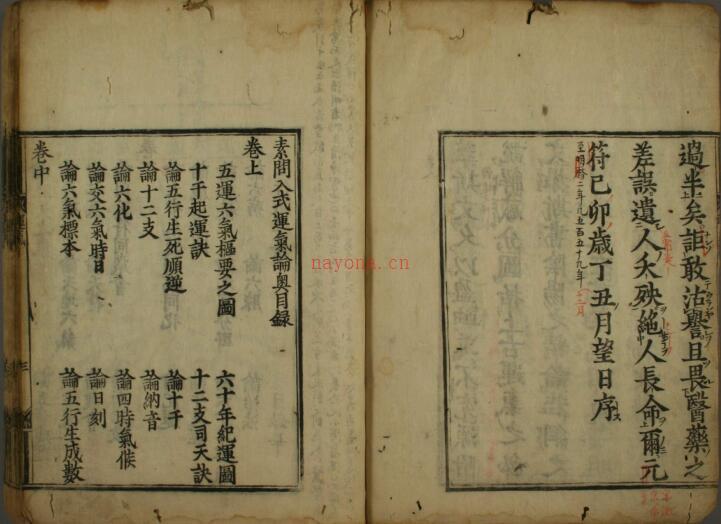 過半矣詎敢沽譽且畏醫藥之
差誤遺人夭殃絕人長命爾元
符己卯歲丁丑月望日序
至明曆二年凡五百五十九年
素問入式運氣論奧目錄
卷上
五運六氣樞要之圖
六十年紀運圖
十干起運訣
十二支司天訣
論五行生死順逆
論十干
論十二支
論納音
論六化
論四時氣候
論交六氣時日
論日刻
論六氣標本
論五行生成數
卷中
nayona.cn